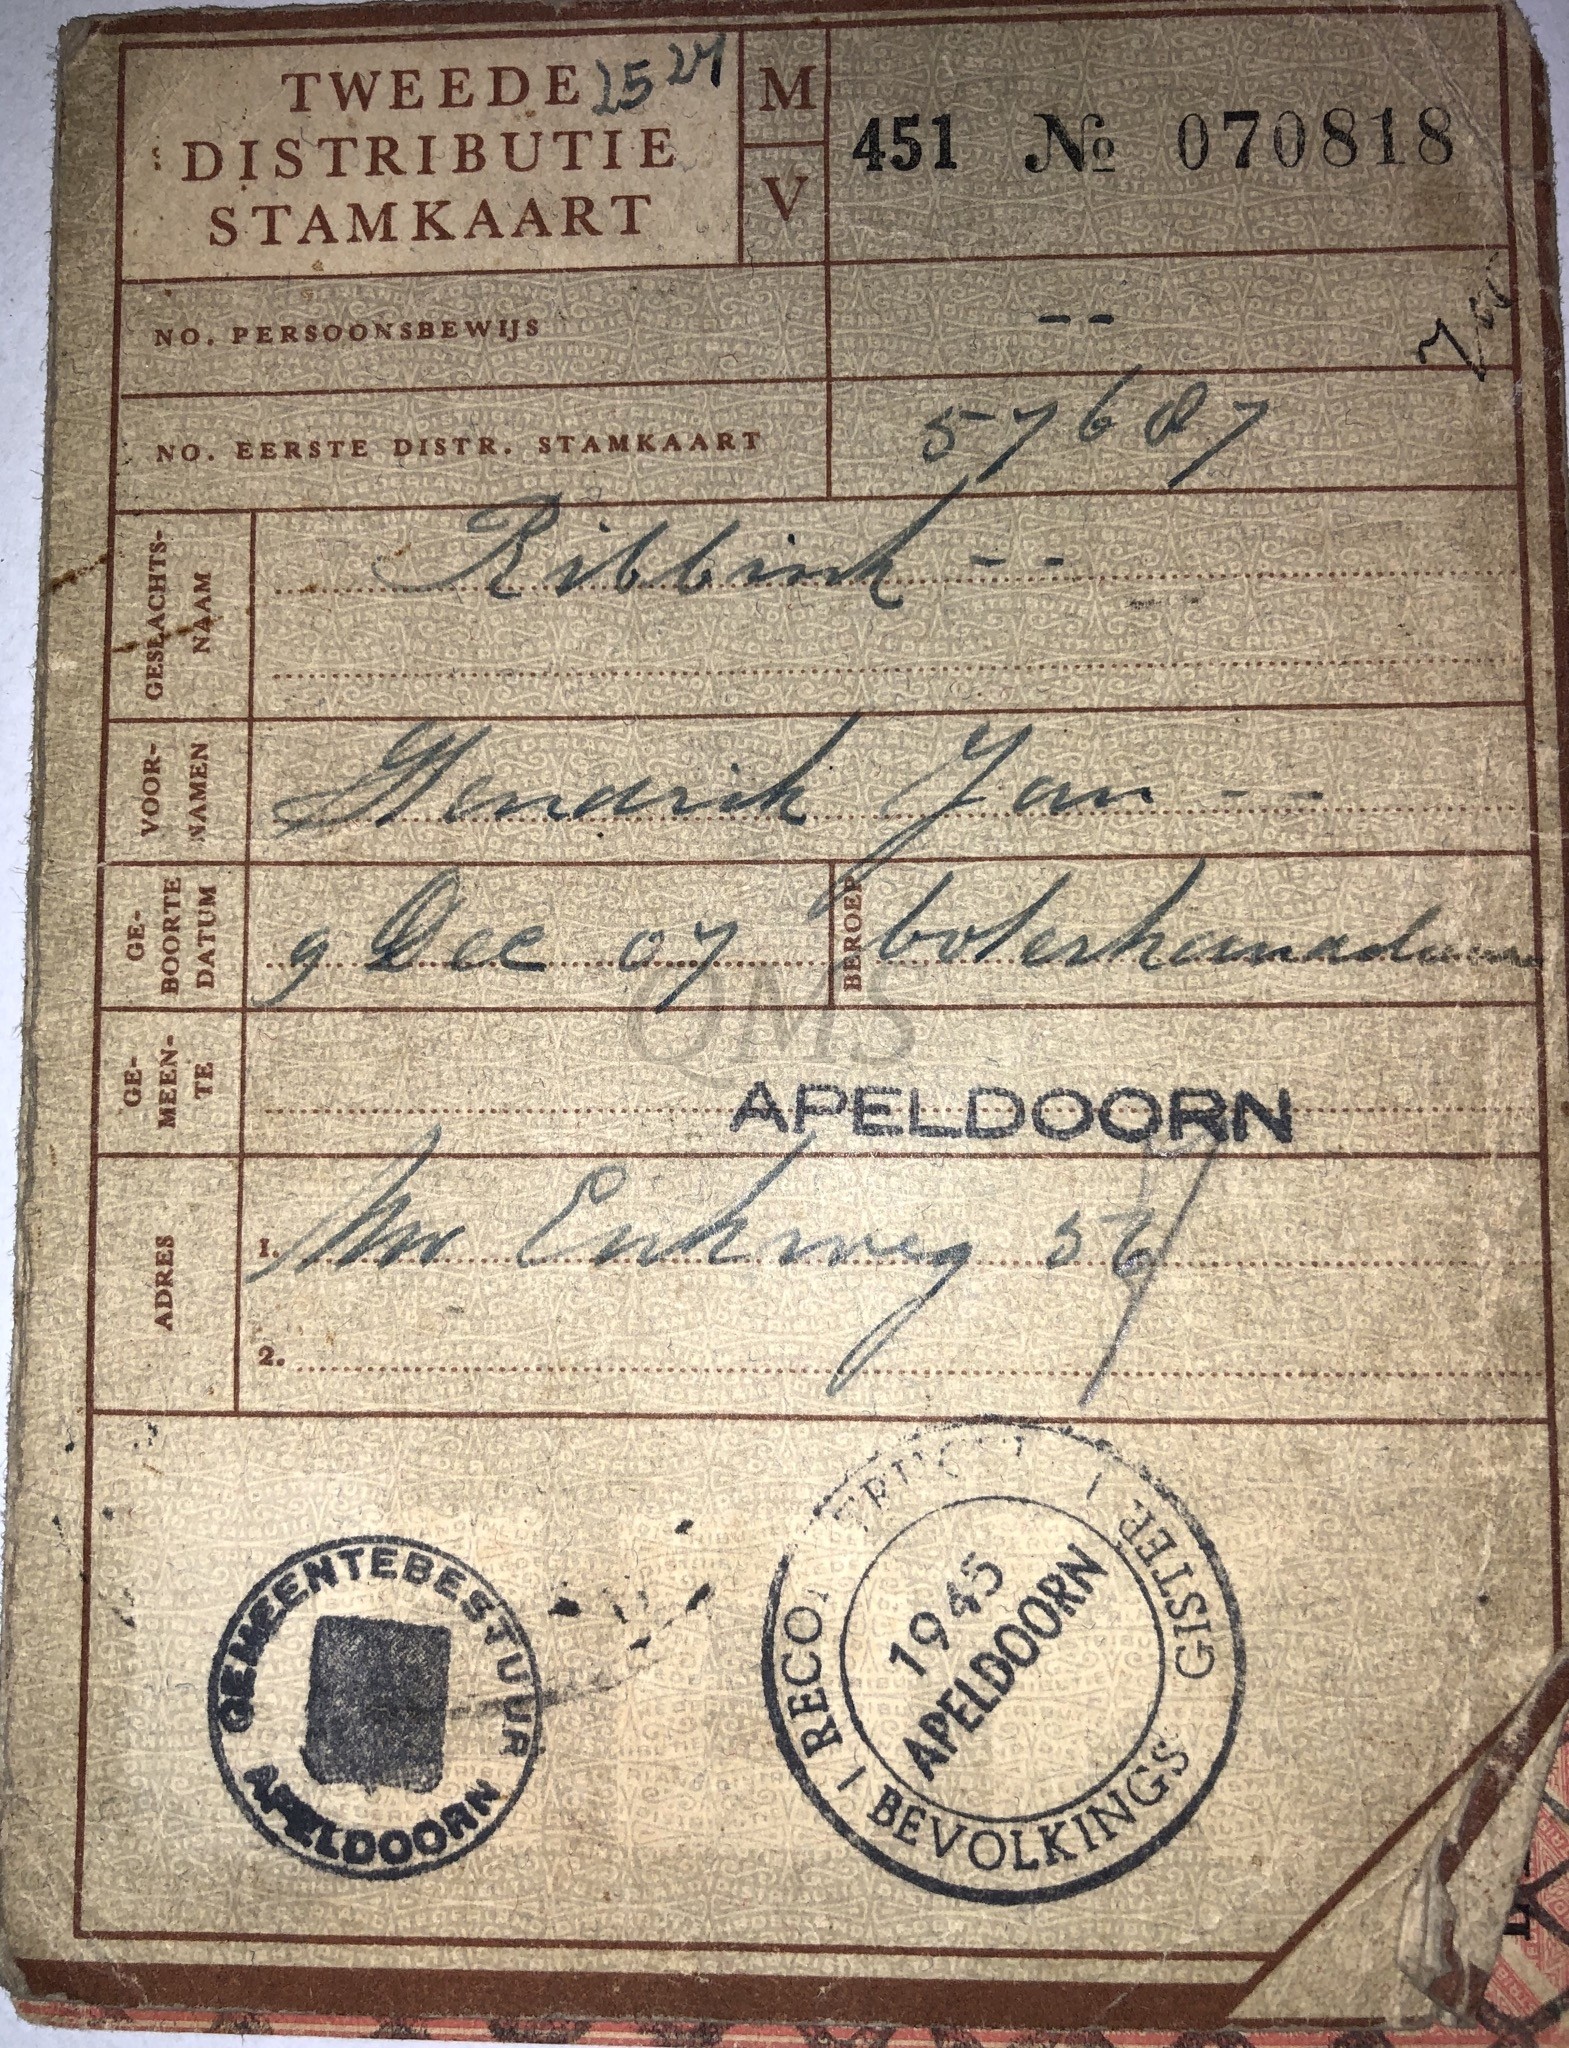 TWEEDE 25 24
DISTRIBUTIE
STAMKAART
M
V
451 № 070818
NO. PERSOONSBEWIJS --
NO. EERSTE DISTR. STAMKAART 57687
GESLACHTS-
NAAM
Ribbink --
VOOR-
NAMEN
Hendrik Jan --
GE-
BOORTE
DATUM
9 Dec 07
BEROEP
boterhandelaar
GE-
MEEN-
TE
APELDOORN
QMS
ADRES
1. Enkweg 56
2.
GEMEENTEBESTUUR
APELDOORN
BEVOLKINGS
GISTER
1945
APELDOORN